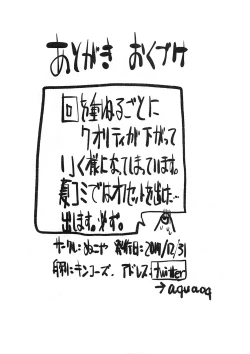 あとがき おくづけ
回を重ねるごとに
クオリティが下がって
いく様になってしまっています。
夏コミではオフセットを出せ…
出します。必ず。
サークル:ぬこや 発行日:2011/12/31
印刷:キンコーズ. アドレス:twitter
→aquaoq